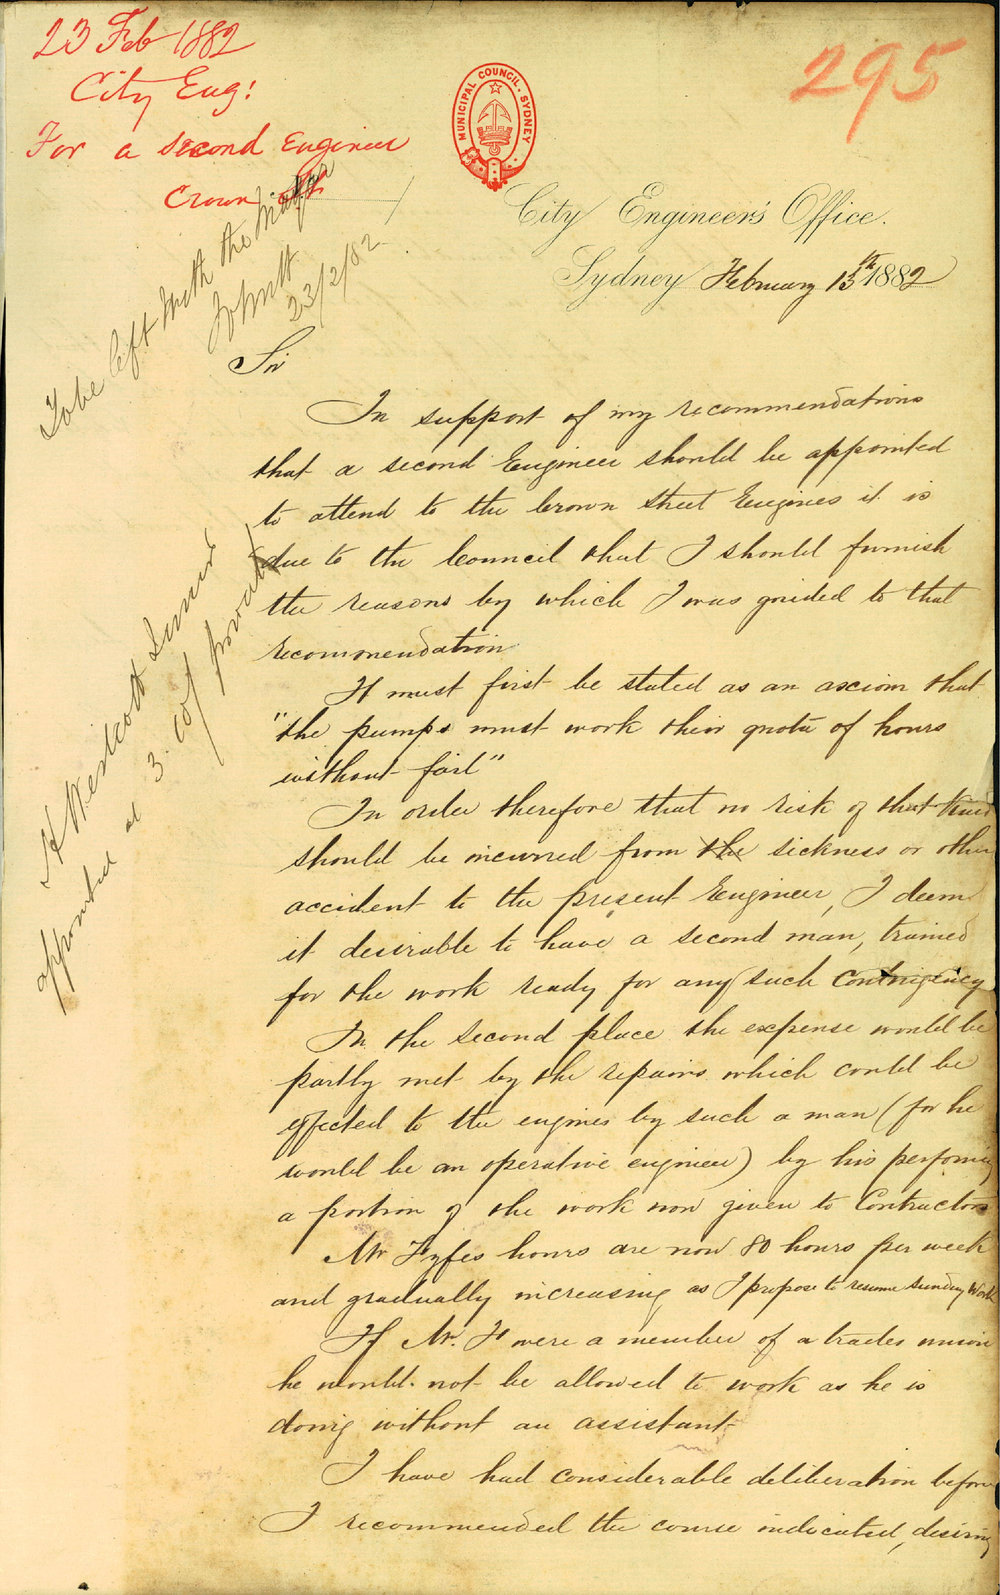 23 Feb 1882
City Eng:
For a second Engineer
Crown St
295
MUNICIPAL COUNCIL. SYDNEY
City Engineer's Office.
Sydney February 13th 1882
To be left with the Mayor
23/2/82
Sir
In support of my recommendations
that a second Engineer should be appointed
to attend to the Crown Street Engines it is
due to the Council that I should furnish
the reasons by which I was guided to that
recommendation
It must first be stated as an axiom that
"the pumps must work their quota of hours
without fail"
In order therefore that no risk of that kind
should be incurred from the sickness or other
accident to the present Engineer, I deem
it desirable to have a second man, trained
for the work ready for any such contingency
In the second place the expense would be
partly met by the repairs which could be
effected to the engines by such a man (for he
would be an operative engineer) by his performing
a portion of the work now given to Contractors
Mr Fyfes hours are now 80 hours per week
and gradually increasing as I propose to resume Sunday work
If Mr. F were a member of a trades union
he would not be allowed to work as he is
doing without an assistant
I have had considerable deliberation before
I recommended the course indicated, desiring
A Westcott
appointed at 3.